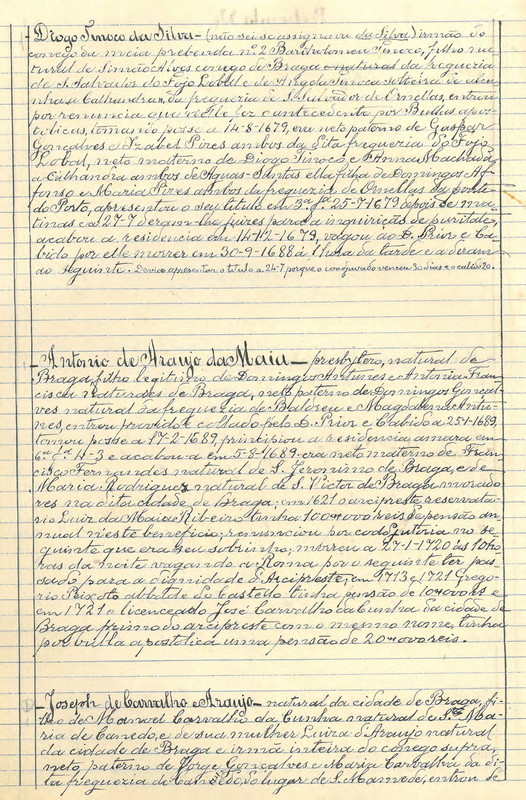 - Diogo Tinoco da Silva - (não sei se assignava da Silva) irmão do
conego da meia prebenda nº 2 Bartholomeu Tinoco, filho na
tural de Simão Alves conego de Braga e natural da freguezia
de S. Salvador do Fojo Lobal e de Angela Tinoca solteira de
Calhandra, da freguezia de S. Salvador de Ornellas, entrou
por renuncia que n'elle fez o antecedente por Bullas apos-
tolicas, tomando posse a 14-8-1679, era neto paterno de Gaspar
Gonçalves e Izabel Pires ambos da dita freguezia do Fojo
Lobal, neto materno de Diogo Tinoco e Anna Machada
a Calhandra ambos de Aguas-Santas ella filha de Domingos Af-
fonso e Maria Pires ambos da freguezia de Ornellas da ponte
do Porto, apresentou o seu titulo em 3ª fª 25-7-1679 depois de ma-
tinas e a 27-7 deram-lhe juizes para a inquirição de puritate,
acabou a residencia em 14-12-1679, vagou ao D. Prior e Ca-
bido por elle morrer em 30-9-1688 á 1 hora da tarde e a deram
ao seguinte. Devia apresentar o titulo a 24-7 porque o conjurado venceu 30 dias e o cabido 20.
- Antonio de Araujo da Maia - presbytero, natural de
Braga, filho legitimo de Domingos Antunes e Antonia Fran-
cisca naturaes de Braga, neto paterno de Domingos Gonçal-
ves natural da freguezia de e Magdalena Antu-
nes, entrou provido e collado pelo D. Prior e Cabido a 25-1-1689,
tomou posse a 17-2-1689, principiou a residencia amara em
6ª fª 4-3 e acabou-a em 5-8-1689, era neto materno de Fran-
cisco Fernandes natural de S. Jeronimo de Braga, e de
Maria Rodrigues natural de S. Victor de Braga e morado-
res na dita cidade de Braga; em 1621 o arcipreste reservata-
rio Luiz da Maia Ribeiro tinha 100$000 reis de pensão an-
nual n'este beneficio; renunciou por coadjutoria no se-
guinte que era seu sobrinho; morreu a 27-1-1720 ás 10 ho-
ras da noite vagando a Roma por o seguinte ter pas-
sado para a dignidade d'Arcipreste; em 1713 e 1721 Grego-
rio Peixoto abbade do Castello tinha pensão de 10$000 reis e
em 1721 o licenceado José Carvalho da Cunha da cidade de
Braga primo do arcipreste com o mesmo nome, tinha
por bulla apostolica uma pensão de 20$000 reis.
- Joseph de Carvalho e Araujo - natural da cidade de Braga, fi-
lho de Manoel Carvalho da Cunha natural de Stª Ma-
ria de Canedo, e de sua mulher Luiza d'Araujo natural
da cidade de Braga e irmã inteira do conego supra,
neto paterno de Jorge Gonçalves e Maria Carvalha da di-
ta freguezia de Canedo, do lugar de S. Mamede, entrou de